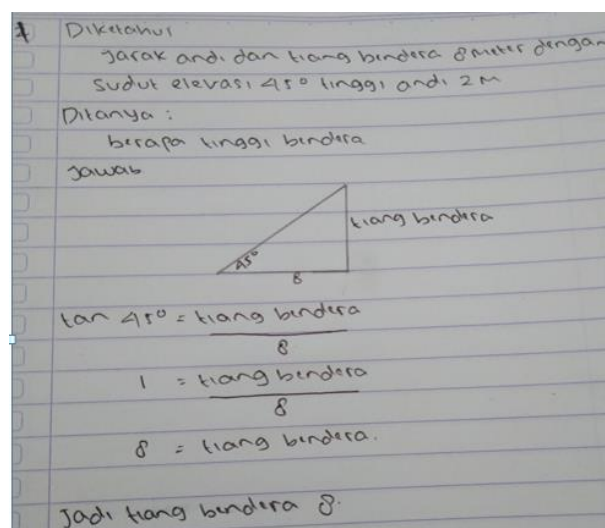 Diketahui
Jarak andi dan tiang bendera 8 meter dengan
sudut elevasi 45° tinggi andi 2 M
Ditanya :
berapa tinggi bendera
Jawab
tiang bendera
45°
8
tan 45° = tiang bendera
8
1 = tiang bendera
8
8 = tiang bendera.
Jadi tiang bendera 8.